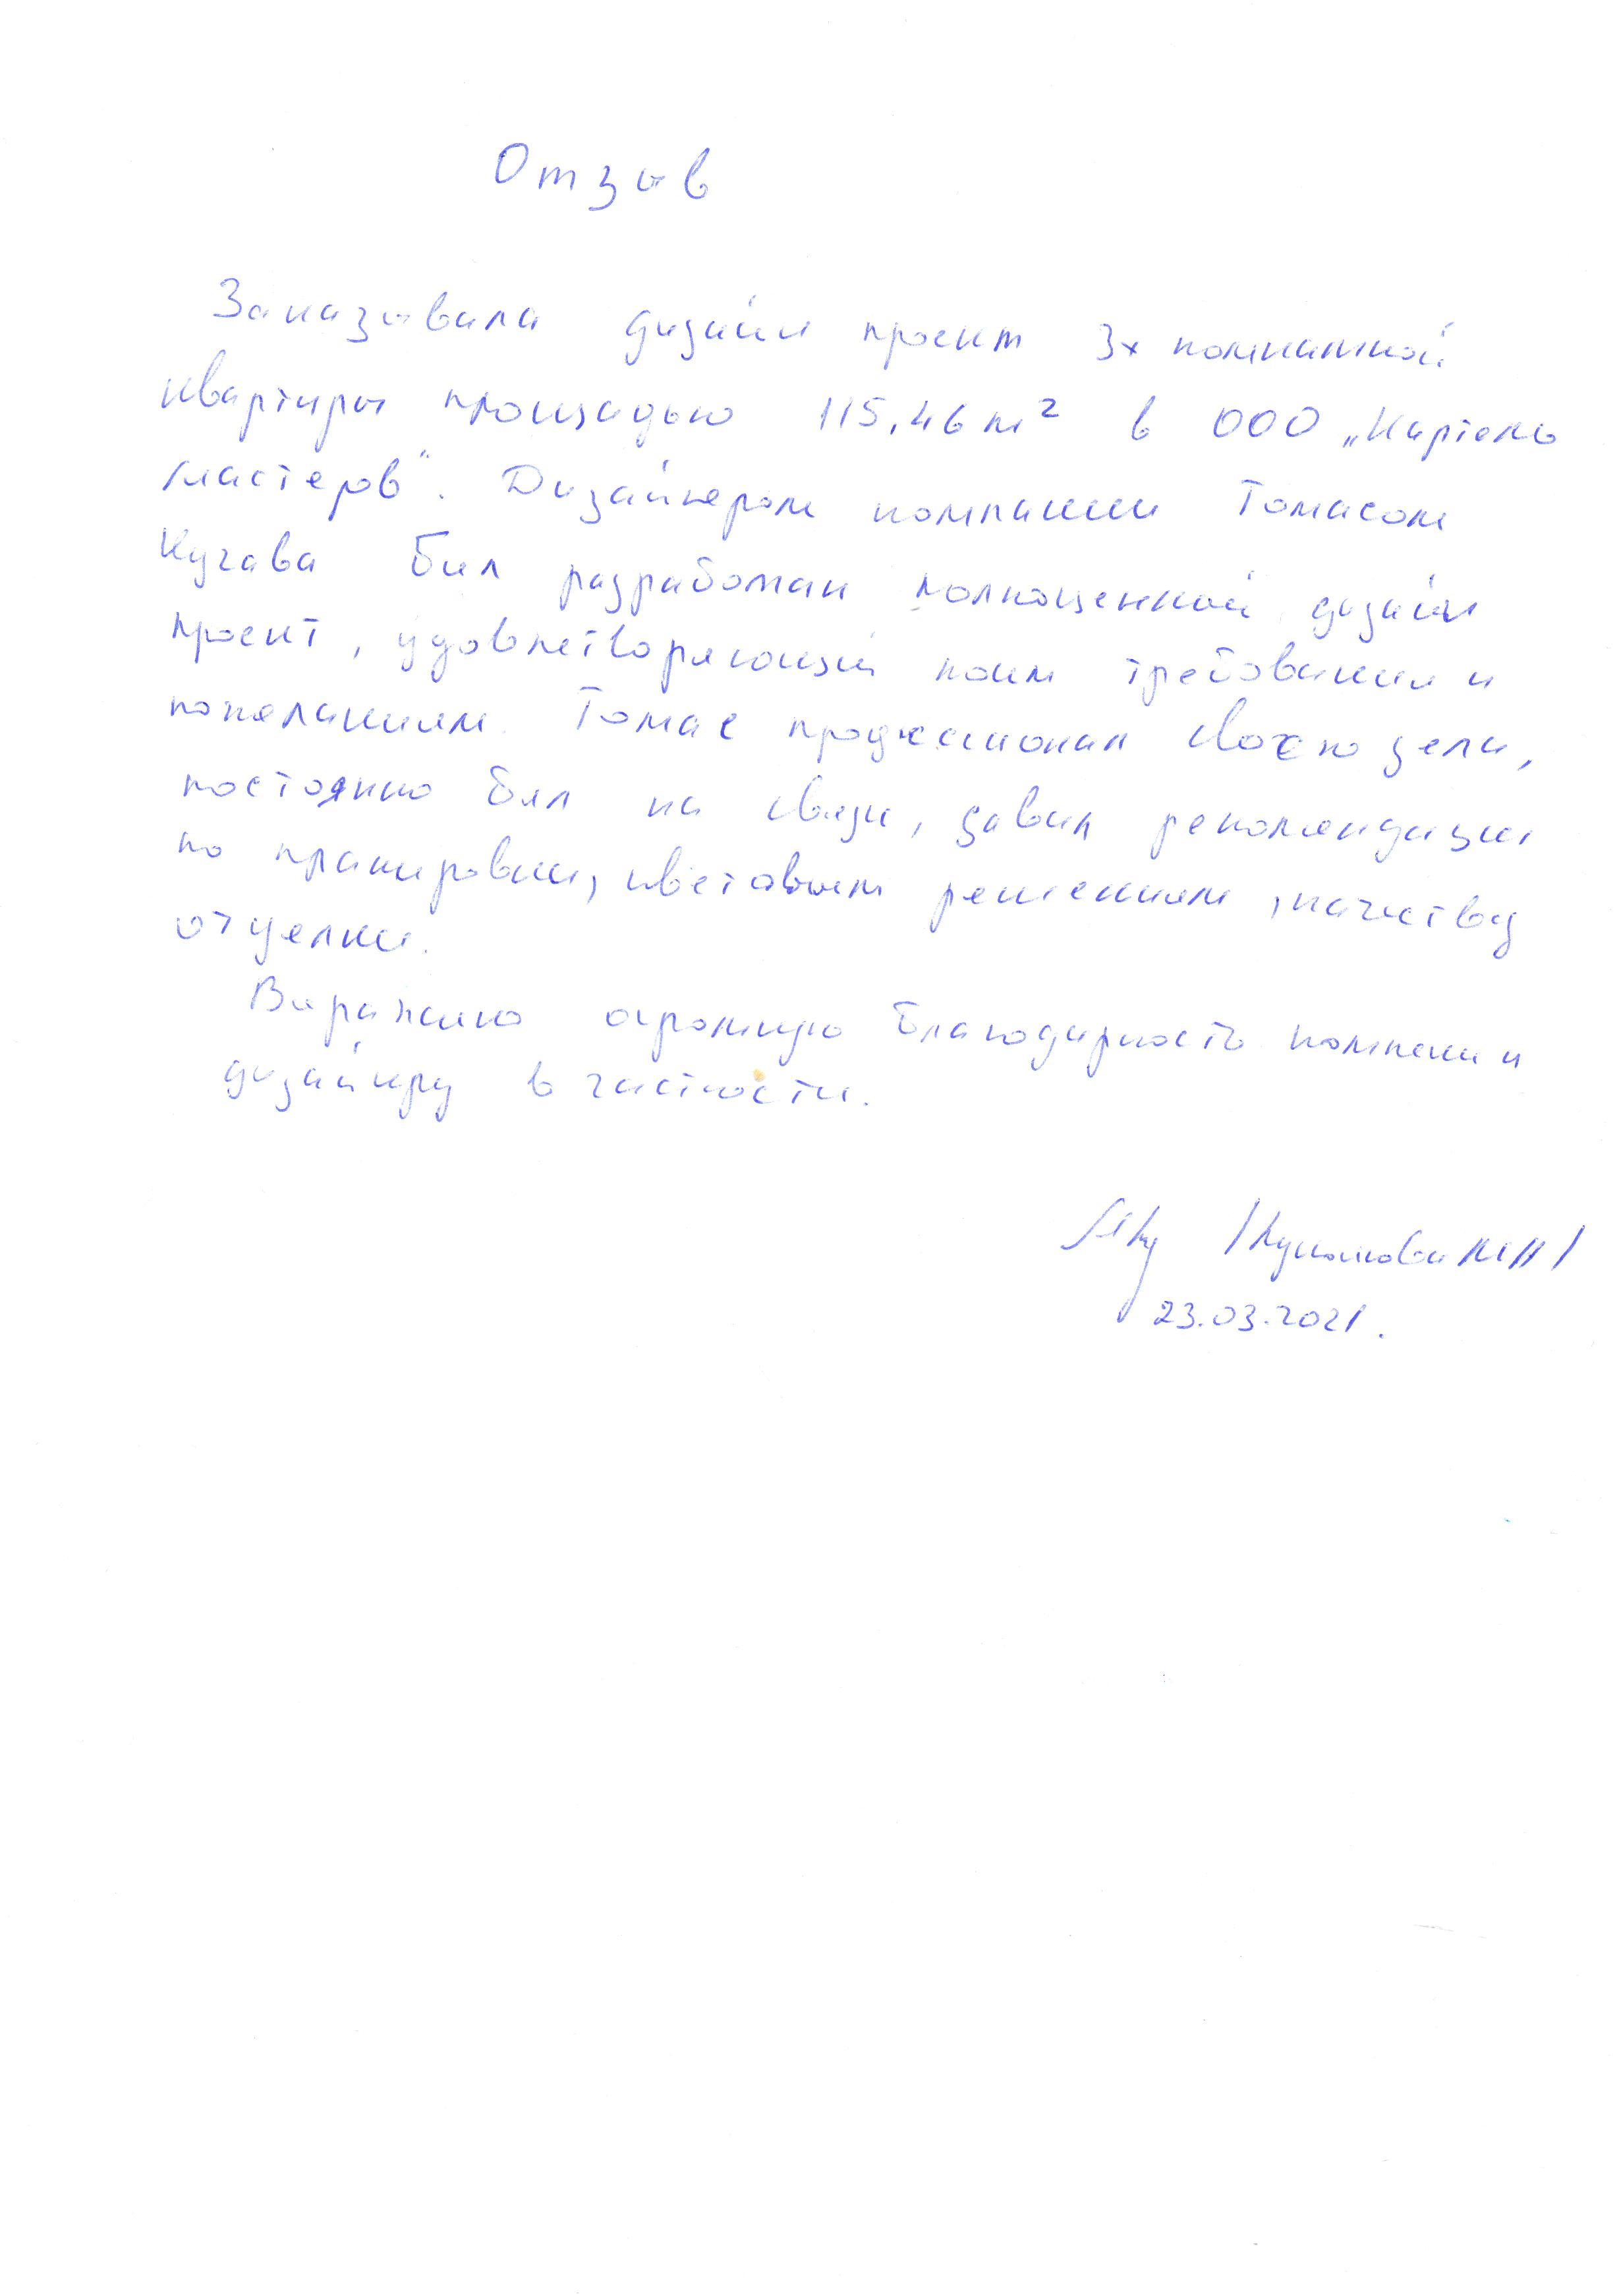 Отзыв
Заказывала дизайн проект 3х комнатной
квартиры площадью 115,46 м² в ООО „Картель
мастеров". Дизайнером компании Томасом
Кучава был разработан полноценный дизайн
проект, удовлетворяющий моим требованиям и
пожеланиям. Томас профессионал своего дела,
постоянно был на связи, давал рекомендации
по планировки, цветовым решениям, качеству
отделки.
Выражаю огромную благодарность компании и
дизайнеру в частности.
23.03.2021.